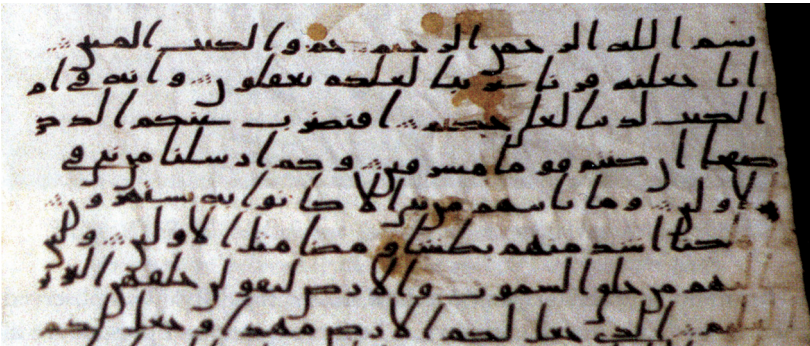 بسم الله الرحمن الرحيم حم والكتب المبين
انا جعلنه قرنا عربيا لعلكم تعقلون وانه في ام
الكتب لدينا لعلي حكيم افنضرب عنكم الذكر
صفحا ان كنتم قوما مسرفين وكم ارسلنا من نبي في
الاولين وما ياتيهم من نبي الا كانوا به يستهزون
اشد منهم بطشا ومضى مثل الاولين ولئن
سالتهم من خلق السموت والارض ليقولن خلقهن
العليم الذي جعل لكم الارض مهدا وجعل لكم